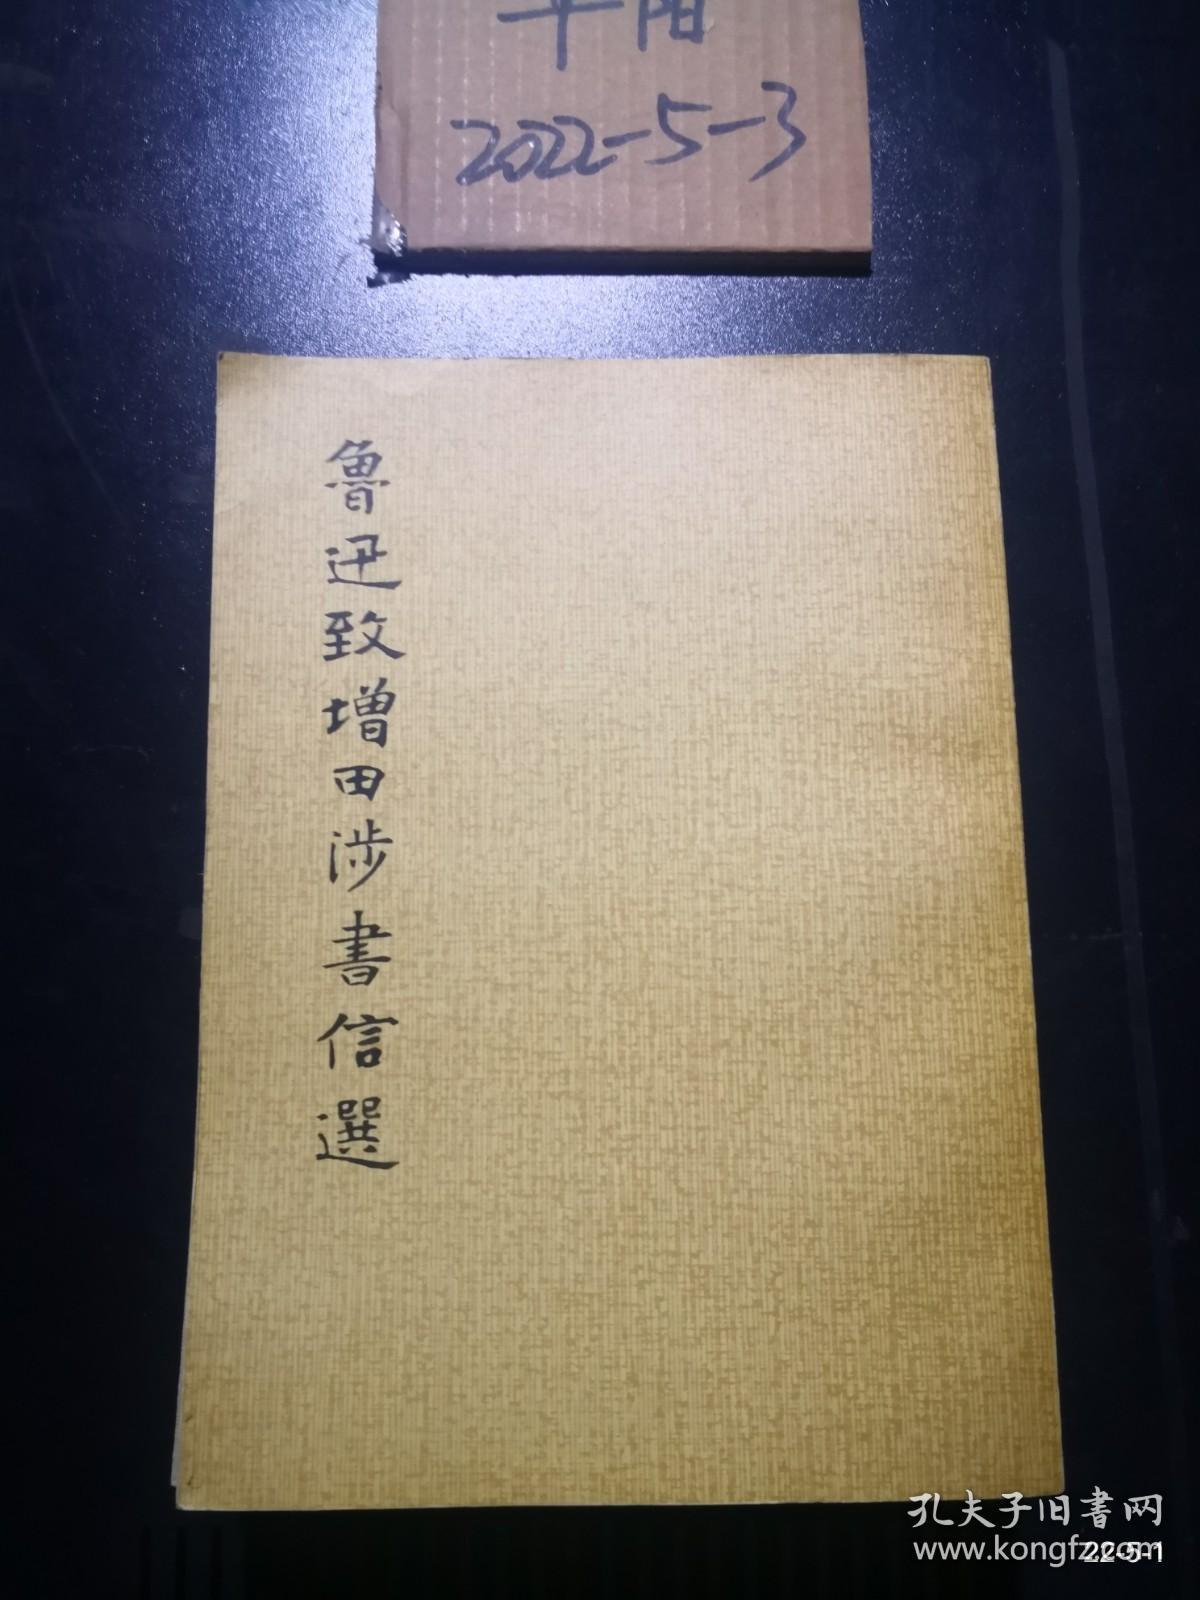 平阳
2022-5-3
魯迅致增田涉書信選
孔夫子旧書网
www.kongfz.com
22-5-1